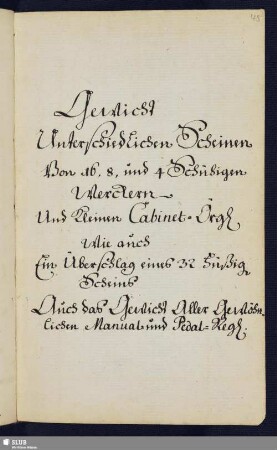 45
Gewicht
Unterschiedlichen Scheinen
Von 16, 8, und 4 Schuhigen
Werckern
Und Kleinen Cabinet-Orgl
Wie auch
Ein Überschlag eines 32 Fußig
Scheins
Auch das Gewicht Aller Gewöhn-
lichen Manual und Pedal-Regl.
SLUB
Wir führen Wissen.